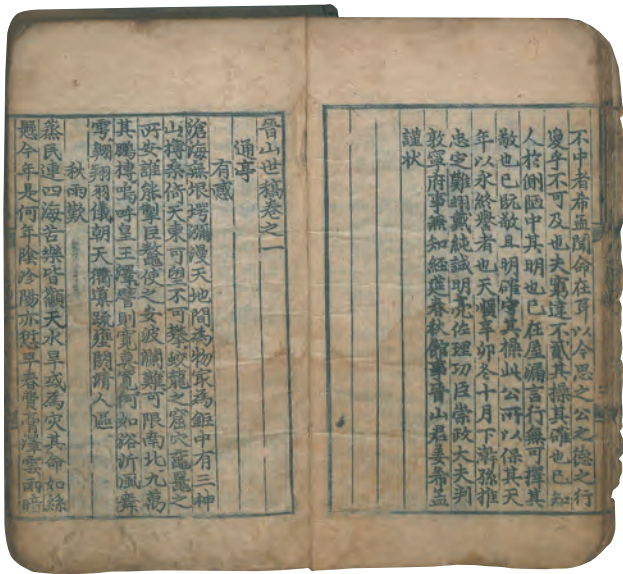 不中者希孟聞命在耳以今思之公之德之行
夐乎不可及也夫窮達不貳其操其確也已知
人於側陋中其明也已在屋漏言行無可擇其
敬也已旣敬且明確守其操此公所以保其天
年以永終譽者也天順辛卯冬十月下澣孫推
忠定難翊戴純誠明亮佐理功臣崇政大夫判
敦寧府事兼知經筵春秋館事晉山君姜希孟
謹狀
晉山世稿卷之一
通亭
有感
滄海無垠堮瀰漫天地間為物㝡為鉅中有三神
山榑桑倚天東可望不可攀蛟龍之窟穴黿鼉之
所安誰能掣巨鼇使之安波瀾難可限南北九萬
其鵬摶嗚呼皇王則寬莫寬何如浴沂風舞
雩翱翔羽儀朝天衢導人區
秋雨歎
蒸民連四海苦樂皆籲天水旱或為灾其命如絲
懸今年是何年陰沴陽亦愆早春費雲雨暗